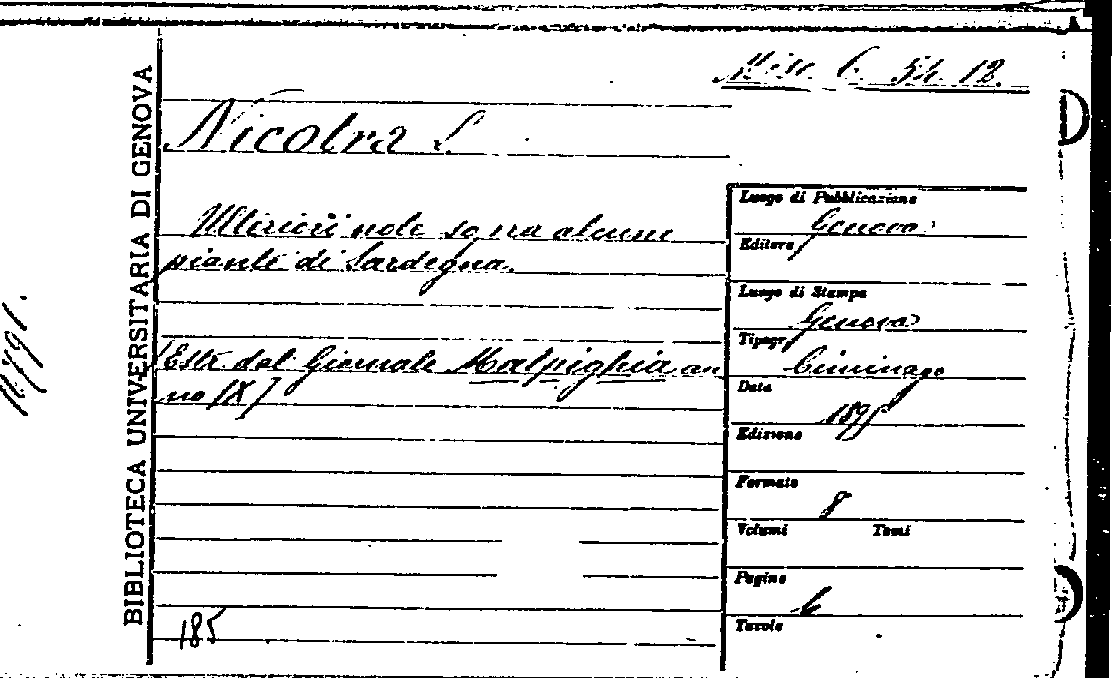 Misc. C. 54. 12.
Nicotra L.
Ulteriori note sopra alcune
piante di Sardegna.
[Estr. dal Giornale Malpighia an
no IX]
185
BIBLIOTECA UNIVERSITARIA DI GENOVA
Luogo di Pubblicazione
Genova
Editore
Luogo di Stampa
Genova
Tipogr.
Ciminago
Data
1895
Edizione
Formato
8
Volumi Tomi
Pagine
6
Tavole